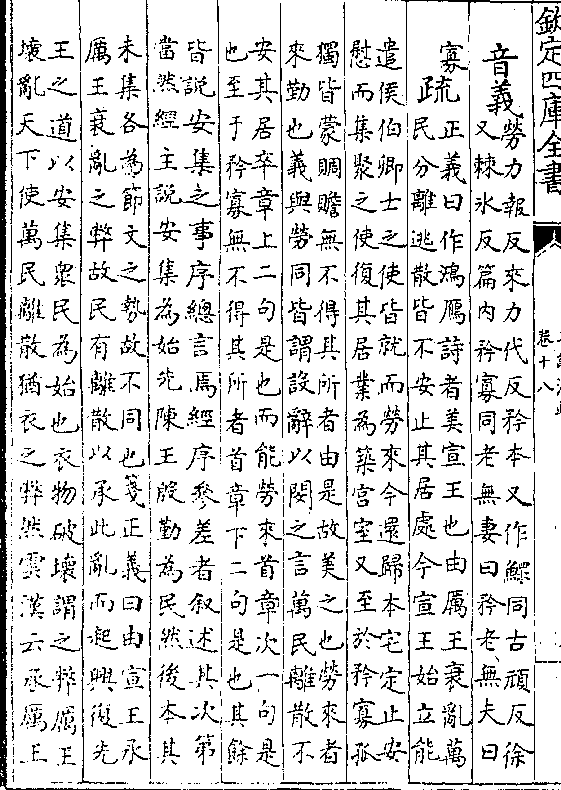 欽定四庫全書
卷十八
音義
勞力報反來力代反矜本又作鰥同古頑反徐
又棘氷反篇内矜寡同老無妻曰矜老無夫曰
寡
疏
正義曰作鴻鴈詩者美宣王也由厲王衰亂萬
民分離逃散皆不安止其居處今宣王始立能
遣侯伯卿士之使皆就而勞來今還歸本宅定止安
慰而集聚之使復其居業為築宫室又至於矜寡孤
獨皆蒙賙贍無不得其所者由是故美之也勞來者
來勤也義與勞同皆謂設辭以閔之言萬民離散不
安其居卒章上二句是也而能勞來首章次一句是
也至于矜寡無不得其所者首章下二句是也其餘
皆說安集之事序總言焉經序參差者叙述其次第
當然經主說安集為始先陳王殷勤為民然後本其
未集各為節文之勢故不同也箋正義曰由宣王承
厲王衰亂之弊故民有離散以承此亂而起興復先
王之道以安集衆民為始也衣物破壞謂之弊厲王
壞亂天下使萬民離散猶衣之弊然雲漢云承厲王